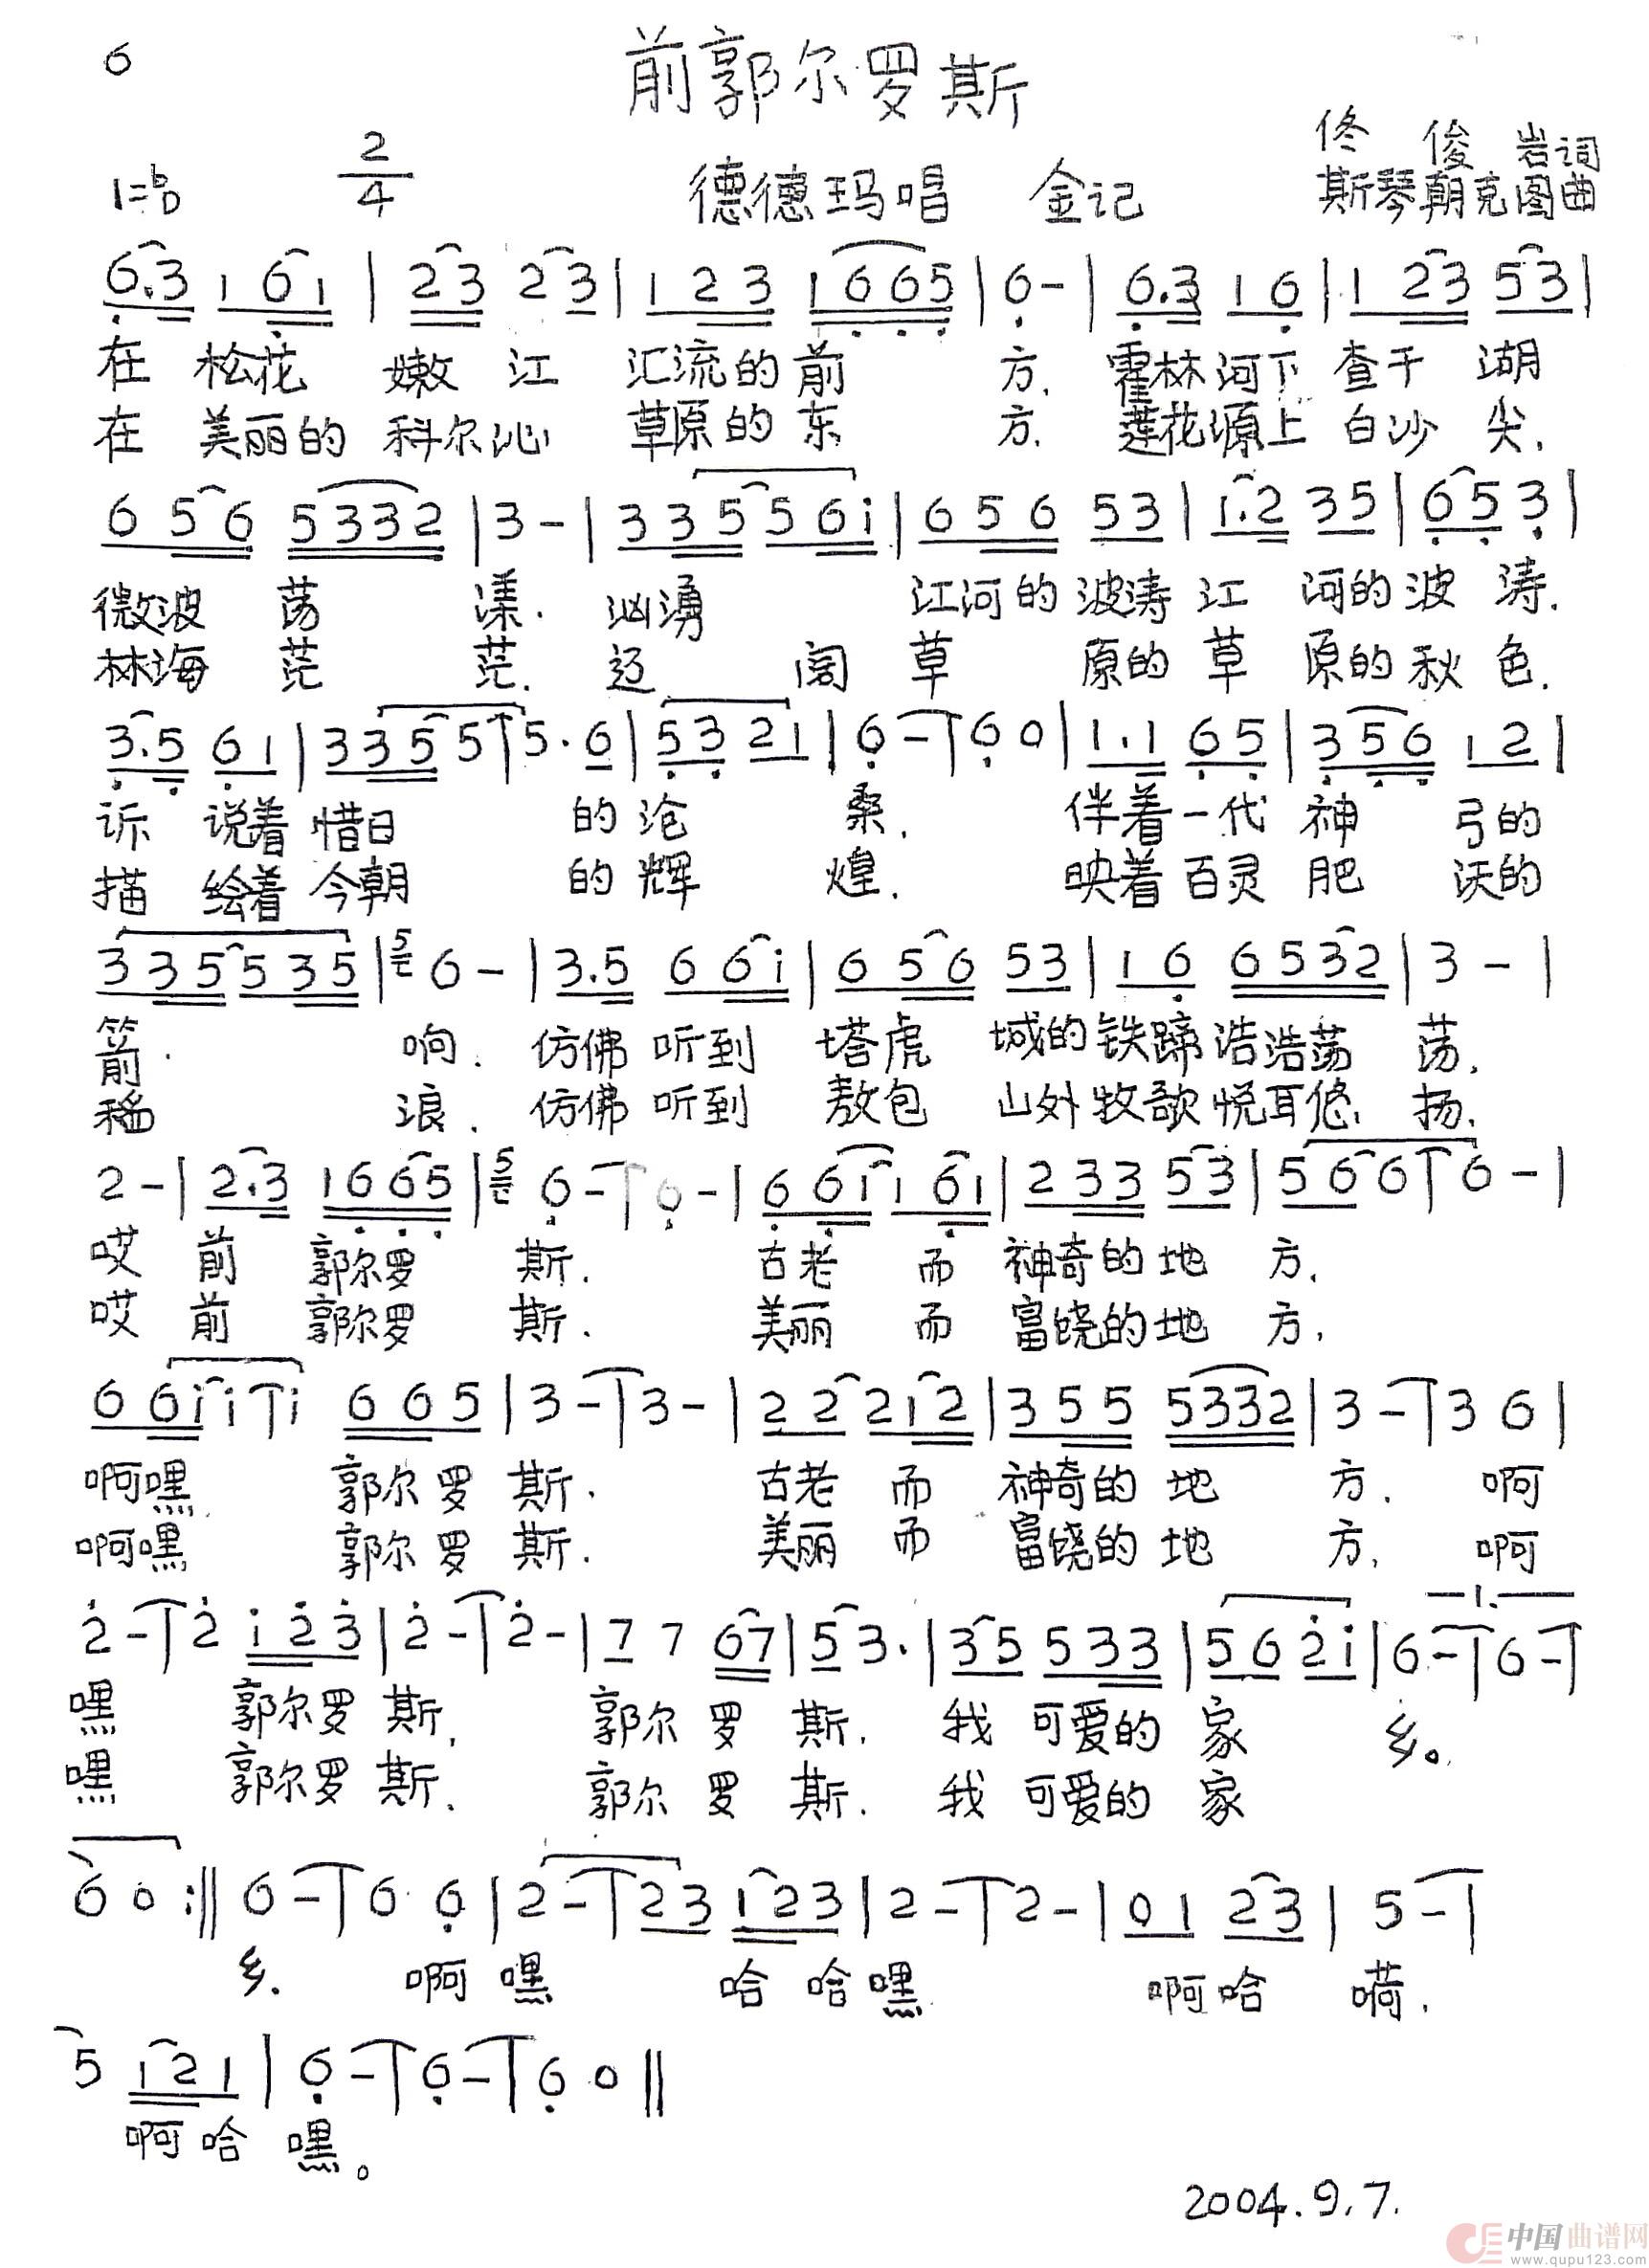 6
前郭尔罗斯
1=♭D 2/4 德德玛唱 金记
佟 俊 岩词
斯琴朝克图曲
6.3 1 6 1 | 2 3 2 3 | 1 2 3 1 6 6 5 | 6 - | 6.3 1 6 | 1 2 3 5 3 |
在 松花 嫩 江 汇流的前 方. 霍林河下 查干 湖
在 美丽的 科尔沁 草原的 东 方. 莲花源上 白沙 尖.
6 5 6 5 3 3 2 | 3 - | 3 3 5 5 6 i | 6 5 6 5 3 | 1.2 3 5 | 6 5 3 |
微波 荡 漾. 汹湧 江河的 波涛 江 河的 波 涛.
林海 茫 茫. 辽 阔 草 原的 草 原的 秋 色.
3.5 6 1 | 3 3 5 5 | 5. 6 | 5 3 2 1 | 6 - | 6 0 | 1.1 6 5 | 3 5 6 1 2 |
诉 说着 惜日 的 沧 桑. 伴着一代 神 弓的
描 绘着 今朝 的 辉 煌. 映着百灵 肥 沃的
3 3 5 5 3 5 | 5 6 - | 3.5 6 6 i | 6 5 6 5 3 | 1 6 6 5 3 2 | 3 - |
箭. 响. 仿佛 听到 塔虎 城的 铁蹄 浩浩荡 荡.
稀 浪. 仿佛 听到 敖包 山外 牧歌 悦耳悠 扬.
2 - | 2.3 1 6 6 5 | 5 6 - | 6 - | 6 6 1 1 6 1 | 2 3 3 5 3 | 5 6 6 | 6 - |
哎 前 郭尔罗 斯. 古老 而 神奇的 地 方.
哎 前 郭尔罗 斯. 美丽 而 富饶的地 方.
6 6 i i | i 6 6 5 | 3 - | 3 - | 2 2 2 1 2 | 3 5 5 5 3 3 2 | 3 - | 3 6 |
啊嘿 郭尔 罗 斯. 古老 而 神奇的 地 方. 啊
啊嘿 郭尔 罗 斯. 美丽 而 富饶的 地 方. 啊
2 - | 2 i 2 3 | 2 - | 2 - | 7 7 6 7 | 5 3. | 3 5 5 3 3 | 5 6 2 i | 1. 6 - | 6 - |
嘿 郭尔罗 斯. 郭尔 罗 斯. 我 可爱的 家 乡。
嘿 郭尔罗 斯. 郭尔 罗 斯. 我 可爱的 家
6 0 :‖ 6 - | 6 6 | 2 - | 2 3 1 2 3 | 2 - | 2 - | 0 1 2 3 | 5 - |
乡. 啊 嘿 哈 哈 嘿 啊哈 嗬.
5 1 2 1 | 6 - | 6 - | 6 0 ‖
啊 哈 嘿。
2004.9.7.
中国曲谱网
www.qupu123.com